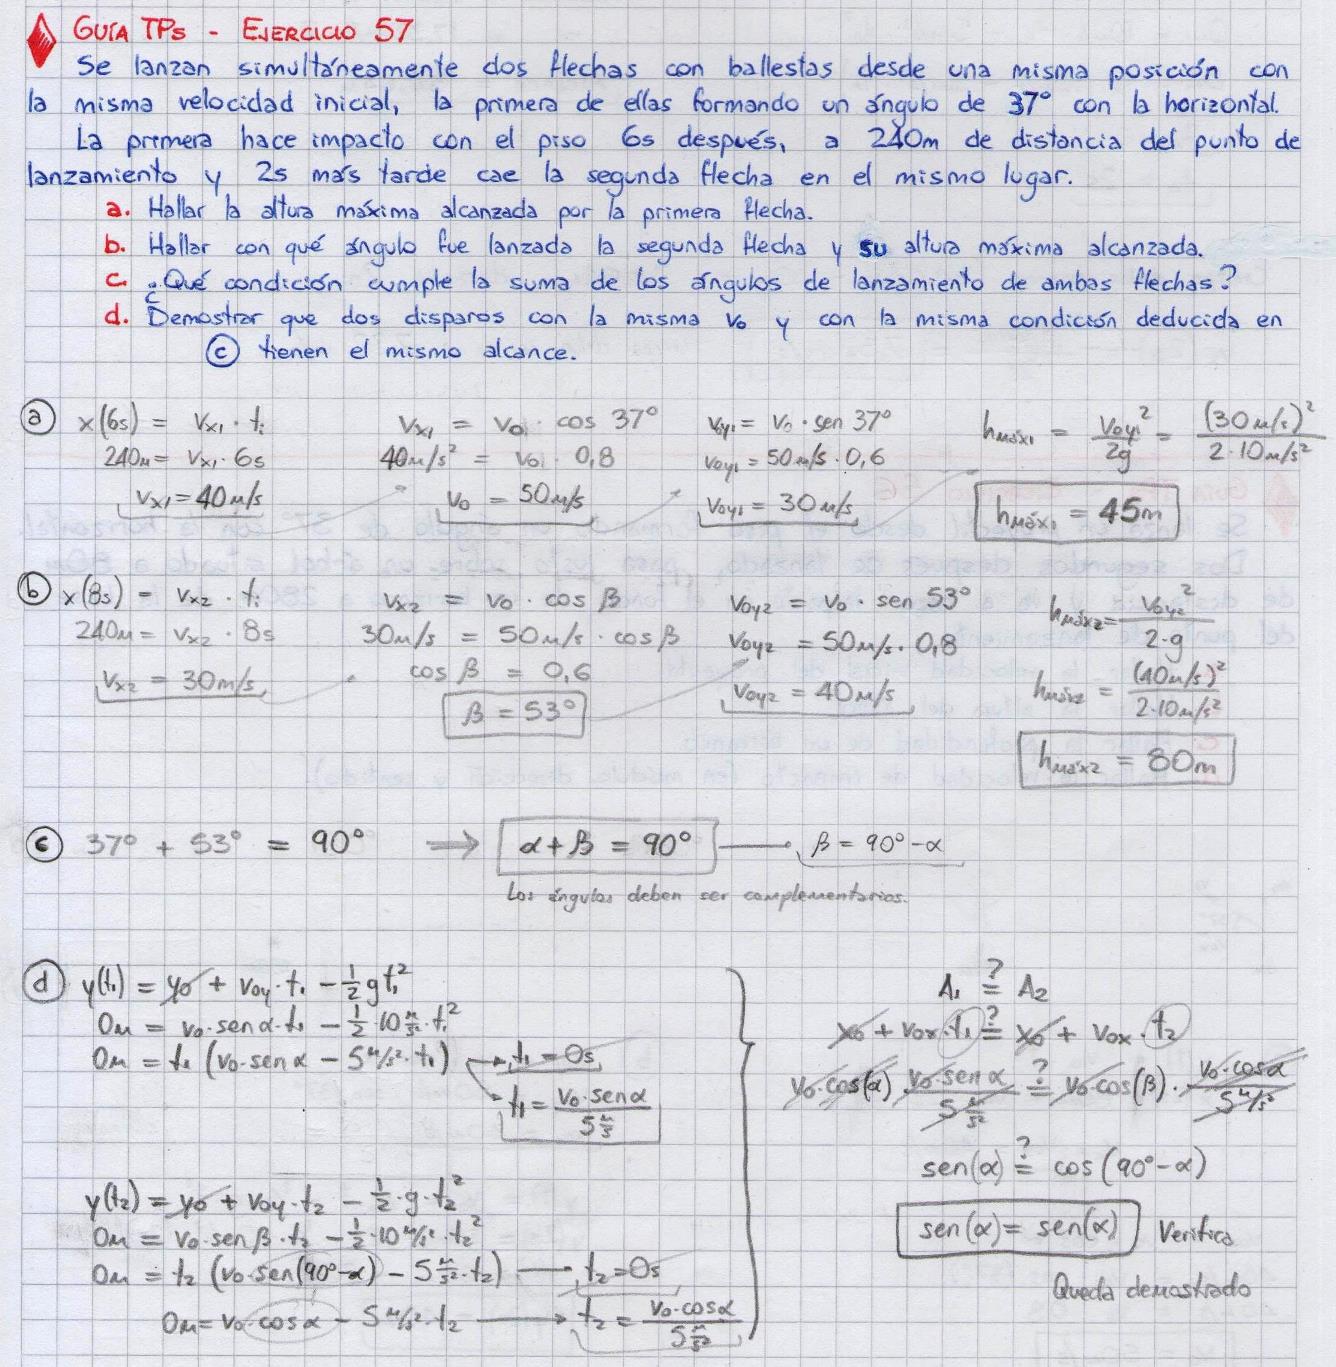 GUÍA TPs - EJERCICIO 57
Se lanzan simultáneamente dos flechas con ballestas desde una misma posición con
la misma velocidad inicial, la primera de ellas formando un ángulo de 37° con la horizontal.
La primera hace impacto con el piso 6s después, a 240m de distancia del punto de
lanzamiento y 2s más tarde cae la segunda flecha en el mismo lugar.
a. Hallar la altura máxima alcanzada por la primera flecha.
b. Hallar con qué ángulo fue lanzada la segunda flecha y su altura máxima alcanzada.
c. ¿Qué condición cumple la suma de los ángulos de lanzamiento de ambas flechas?
d. Demostrar que dos disparos con la misma v₀ y con la misma condición deducida en
ⓒ tienen el mismo alcance.
ⓐ x(6s) = Vx₁ · tᵢ
240m = Vx₁ · 6s
Vx₁ = 40m/s
Vx₁ = V₀ · cos 37°
40m/s² = V₀ · 0,8
V₀ = 50m/s
V₀y₁ = V₀ · sen 37°
V₀y₁ = 50m/s · 0,6
V₀y₁ = 30m/s
hmáx₁ = V₀y₁² / 2g = (30m/s)² / 2·10m/s²
hmáx₁ = 45m
ⓑ x(8s) = Vx₂ · tᵢ
240m = Vx₂ · 8s
Vx₂ = 30m/s
Vx₂ = V₀ · cos β
30m/s = 50m/s · cos β
cos β = 0,6
β = 53°
V₀y₂ = V₀ · sen 53°
V₀y₂ = 50m/s · 0,8
V₀y₂ = 40m/s
hmáx₂ = V₀y₂² / 2·g
hmáx₂ = (40m/s)² / 2·10m/s²
hmáx₂ = 80m
ⓒ 37° + 53° = 90° ⟹ α + β = 90° — β = 90° - α
Los ángulos deben ser complementarios.
ⓓ y(t₁) = y₀ + V₀y · t₁ - ½ g t₁²
0m = V₀ · sen α · t₁ - ½ · 10 m/s² · t₁²
0m = t₁ (V₀ · sen α - 5 m/s² · t₁) → t₁ = 0s
t₁ = V₀ · sen α / 5 m/s
y(t₂) = y₀ + V₀y · t₂ - ½ · g · t₂²
0m = V₀ · sen β · t₂ - ½ · 10 m/s² · t₂²
0m = t₂ (V₀ · sen(90° - α) - 5 m/s² · t₂) → t₂ = 0s
0m = V₀ · cos α - 5 m/s² · t₂ → t₂ = V₀ · cos α / 5 m/s²
A₁ ≟ A₂
x₀ + V₀x · t₁ ≟ x₀ + V₀x · t₂
V₀ · cos(α) · V₀ · sen α / 5 m/s² ≟ V₀ · cos(β) · V₀ · cos α / 5 m/s²
sen(α) ≟ cos(90° - α)
sen(α) = sen(α) Verifica
Queda demostrado